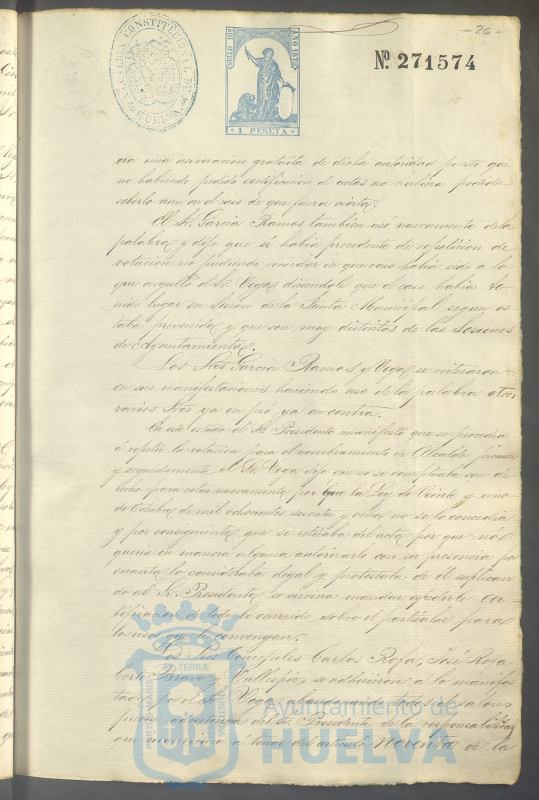 - 26 -
ALCALDIA CONSTITUCIONAL DE HUELVA
SELLO 10º AÑO 1872
1 PESETA
Nº 271574
era una aseveracion gratuita de dicha autoridad puesto que
no habiendo pedido certificacion d actas no hubiera podido
saberlo aun en el caso de que fuera cierta.
El Sr. Garcia Ramos tambien usó nuevamente de la
palabra y dijo que si habia precedente de repeticion de
votacion no pudiendo recordar en que caso habia sido a lo
que arguyó el Sr. Vega diciendole que el caso habia te-
nido lugar en Sesion de la Junta Municipal segun es-
taba prevenido y que son muy distintas de las Sesiones
de Ayuntamiento.
Los Sres Garcia Ramos y Vega se ratificaron
en sus manifestaciones haciendo uso de la palabra otros
varios Sres ya en pró ya en contra.
En este estado el Sr. Presidente manifestó que se procedia
á repetir la votacion para el nombramiento de Alcalde primero
y seguidamente el Sr. Vega dijo que no se conceptuaba con de-
recho para votar nuevamente por que la Ley de Veinte y uno
de Octubre de mil ochocientos sesenta y ocho no se lo concedia
y por consiguiente que se retiraba del acto por que no
queria en manera alguna autorizarlo con su presencia por
cuanto lo consideraba ilegal y protestaba de él suplican-
do al Sr. Presidente se sirviera mandar espedirle Cer-
tificacion de todo lo ocurrido sobre el particular para
los usos que le convengan.
Los Sres Concejales Carlos Rofa, José Rofa
Bravo y Vallespin se adhirieron a la manifes-
tado por el Sr. Vega
previa advertencia del Sr. Presidente de la responsabilidad
que incurrian á tenor del articulo noventa de la
PORTUS MARIS ET TERRÆ CUSTODIA
Ayuntamiento de
HUELVA